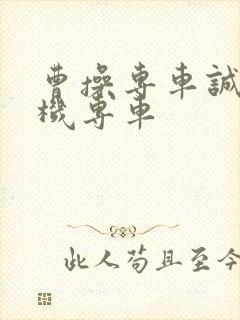 曹操專車誠
機專車
此人苟且至今